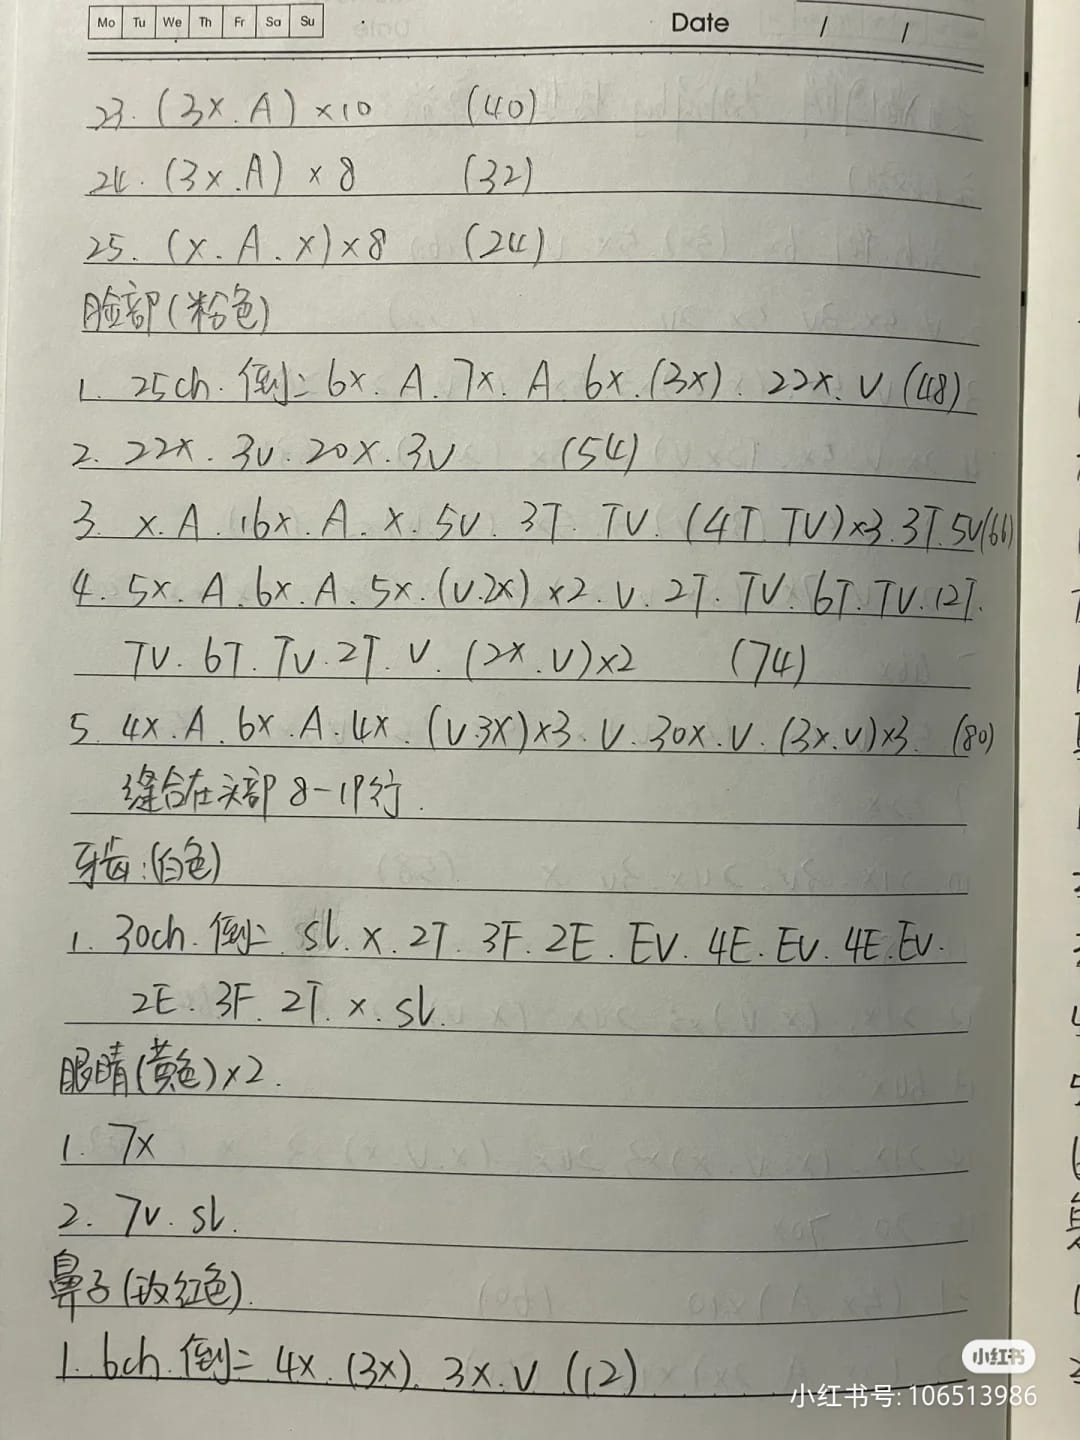 Mo Tu We Th Fr Sa Su
Date / /
23. (3x.A)×10 (40)
24. (3x.A)×8 (32)
25. (x.A.x)×8 (24)
脸部(粉色)
1. 25ch.倒二6x.A.7x.A.6x.(3x).22x.V(48)
2. 22x.3V.20x.3V (54)
3. x.A.16x.A.x.5V.3T.TV.(4T.TV)×3.3T.5V(66)
4. 5x.A.6x.A.5x.(V.2x)×2.V.2T.TV.6T.TV.12T.
TV.6T.TV.2T.V.(2x.V)×2 (74)
5. 4x.A.6x.A.4x.(V.3x)×3.V.30x.V.(3x.V)×3. (80)
缝合在头部8-19行.
牙齿:(白色)
1. 30ch.倒二.sl.x.2T.3F.2E.EV.4E.EV.4E.EV.
2E.3F.2T.x.sl.
眼睛(黄色)×2.
1. 7x
2. 7V.sl.
鼻子(玫红色).
1. 6ch.倒二4x.(3x).3x.V(12)
小红书
小红书号: 106513986